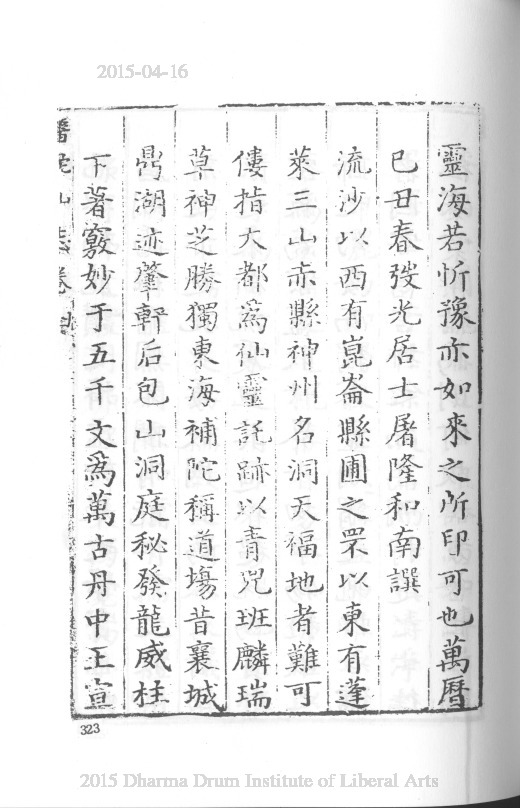 2015-04-16
靈海若忻豫亦如來之所印可也萬曆
己丑春弢光居士屠隆和南譔
流沙以西有崑崙縣圃之罘以東有蓬
萊三山赤縣神州名洞天福地者難可
僂指大都為仙靈託跡以青兕班麟瑞
草神芝勝獨東海補陀稱道場昔襄城
鼎湖迹肇軒后包山洞庭秘發龍威柱
下著竅妙于五千文為萬古丹中王宣
山志卷
323
2015 Dharma Drum Institute of Liberal Arts